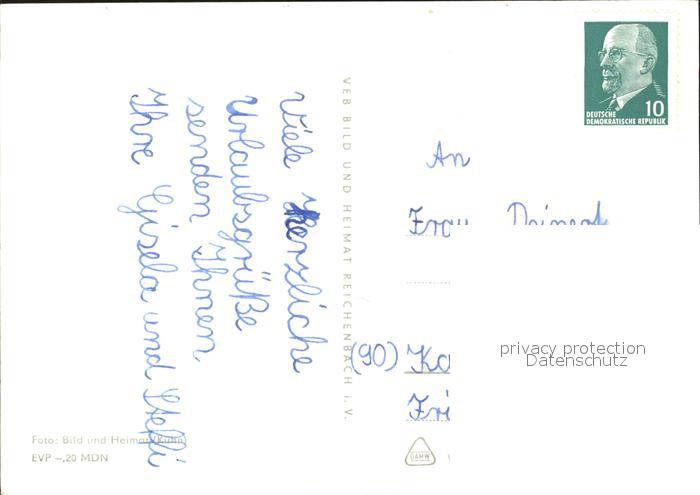 Viele herzliche
Urlaubsgrüße
senden Ihnen
Ihre Gisela und Steffi
VEB BILD UND HEIMAT REICHENBACH i. V.
DEUTSCHE
DEMOKRATISCHE REPUBLIK
10
An
Frau
(90) Ka
Fri
privacy protection
Datenschutz
Foto: Bild und Heimat (Kühn)
EVP –,20 MDN
DAMW